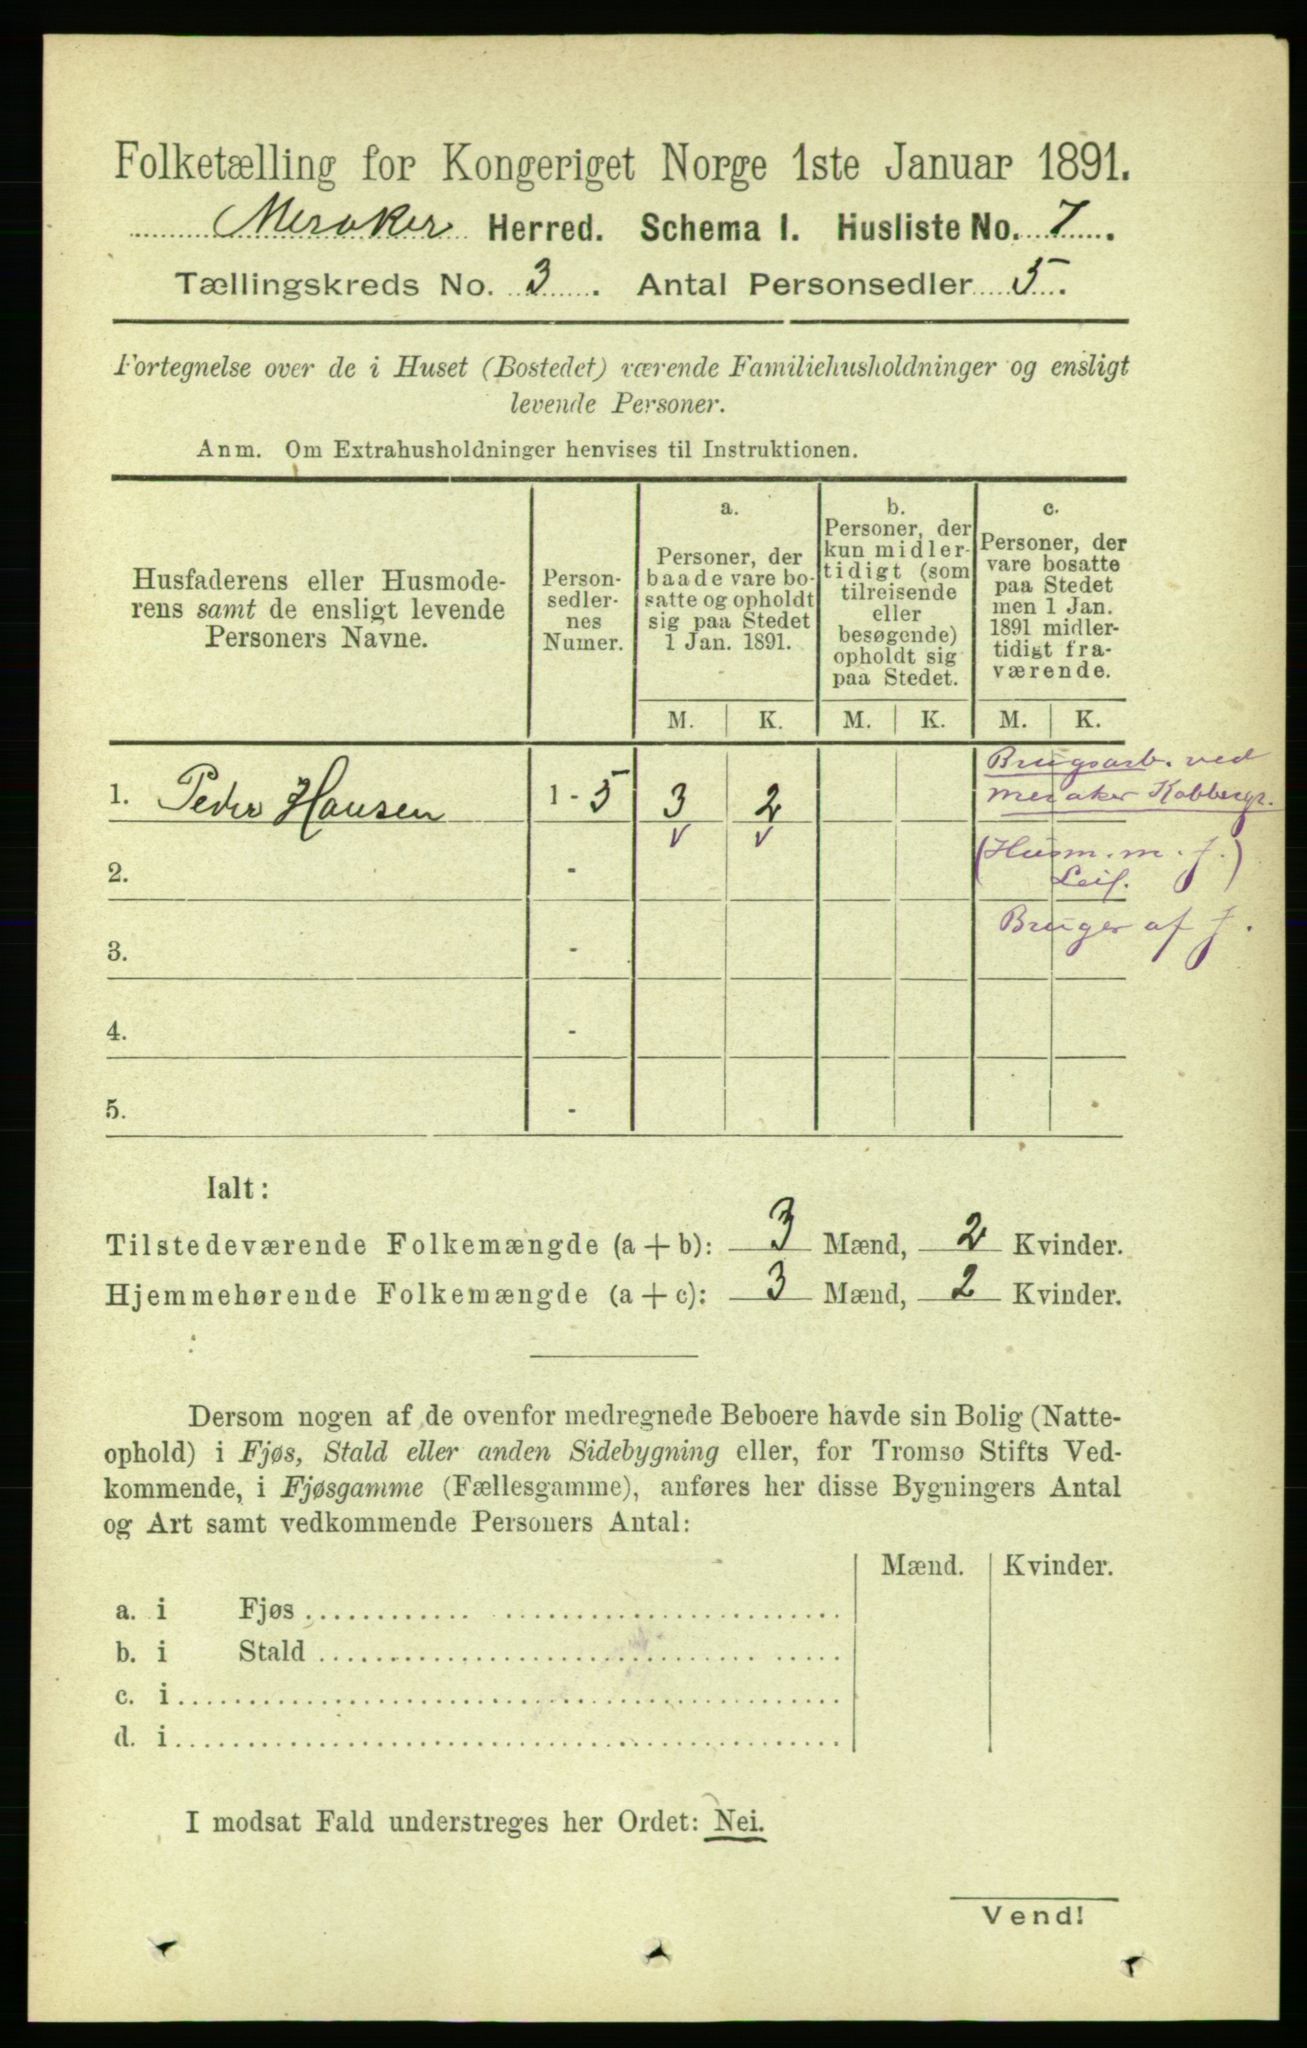 Folketælling for Kongeriget Norge 1ste Januar 1891.
Meraker Herred. Schema I. Husliste No. 7.
Tællingskreds No. 3. Antal Personsedler 5.
Fortegnelse over de i Huset (Bostedet) værende Familiehusholdninger og ensligt
levende Personer.
Anm. Om Extrahusholdninger henvises til Instruktionen.
Husfaderens eller Husmode-
rens samt de ensligt levende
Personers Navne.
Person-
sedler-
nes
Numer.
a.
Personer, der
baade vare bo-
satte og opholdt
sig paa Stedet
1 Jan. 1891.
b.
Personer, der
kun midler-
tidigt (som
tilreisende
eller
besøgende)
opholdt sig
paa Stedet.
c.
Personer, der
vare bosatte
paa Stedet
men 1 Jan.
1891 midler-
tidigt fra-
værende.
M. K. M. K. M. K.
Brugsarb. ved
1. Peder Hansen 1 - 5 3 2 Meraker Kobbergr.
2. - (Husm. m. J.)
Leil.
3. - Bruger af J.
4. -
5. -
Ialt:
Tilstedeværende Folkemængde (a + b): 3 Mænd, 2 Kvinder.
Hjemmehørende Folkemængde (a + c): 3 Mænd, 2 Kvinder.
Dersom nogen af de ovenfor medregnede Beboere havde sin Bolig (Natte-
ophold) i Fjøs, Stald eller anden Sidebygning eller, for Tromsø Stifts Ved-
kommende, i Fjøsgamme (Fællesgamme), anføres her disse Bygningers Antal
og Art samt vedkommende Personers Antal:
Mænd. Kvinder.
a. i Fjøs
b. i Stald
c. i
d. i
I modsat Fald understreges her Ordet: Nei.
Vend!